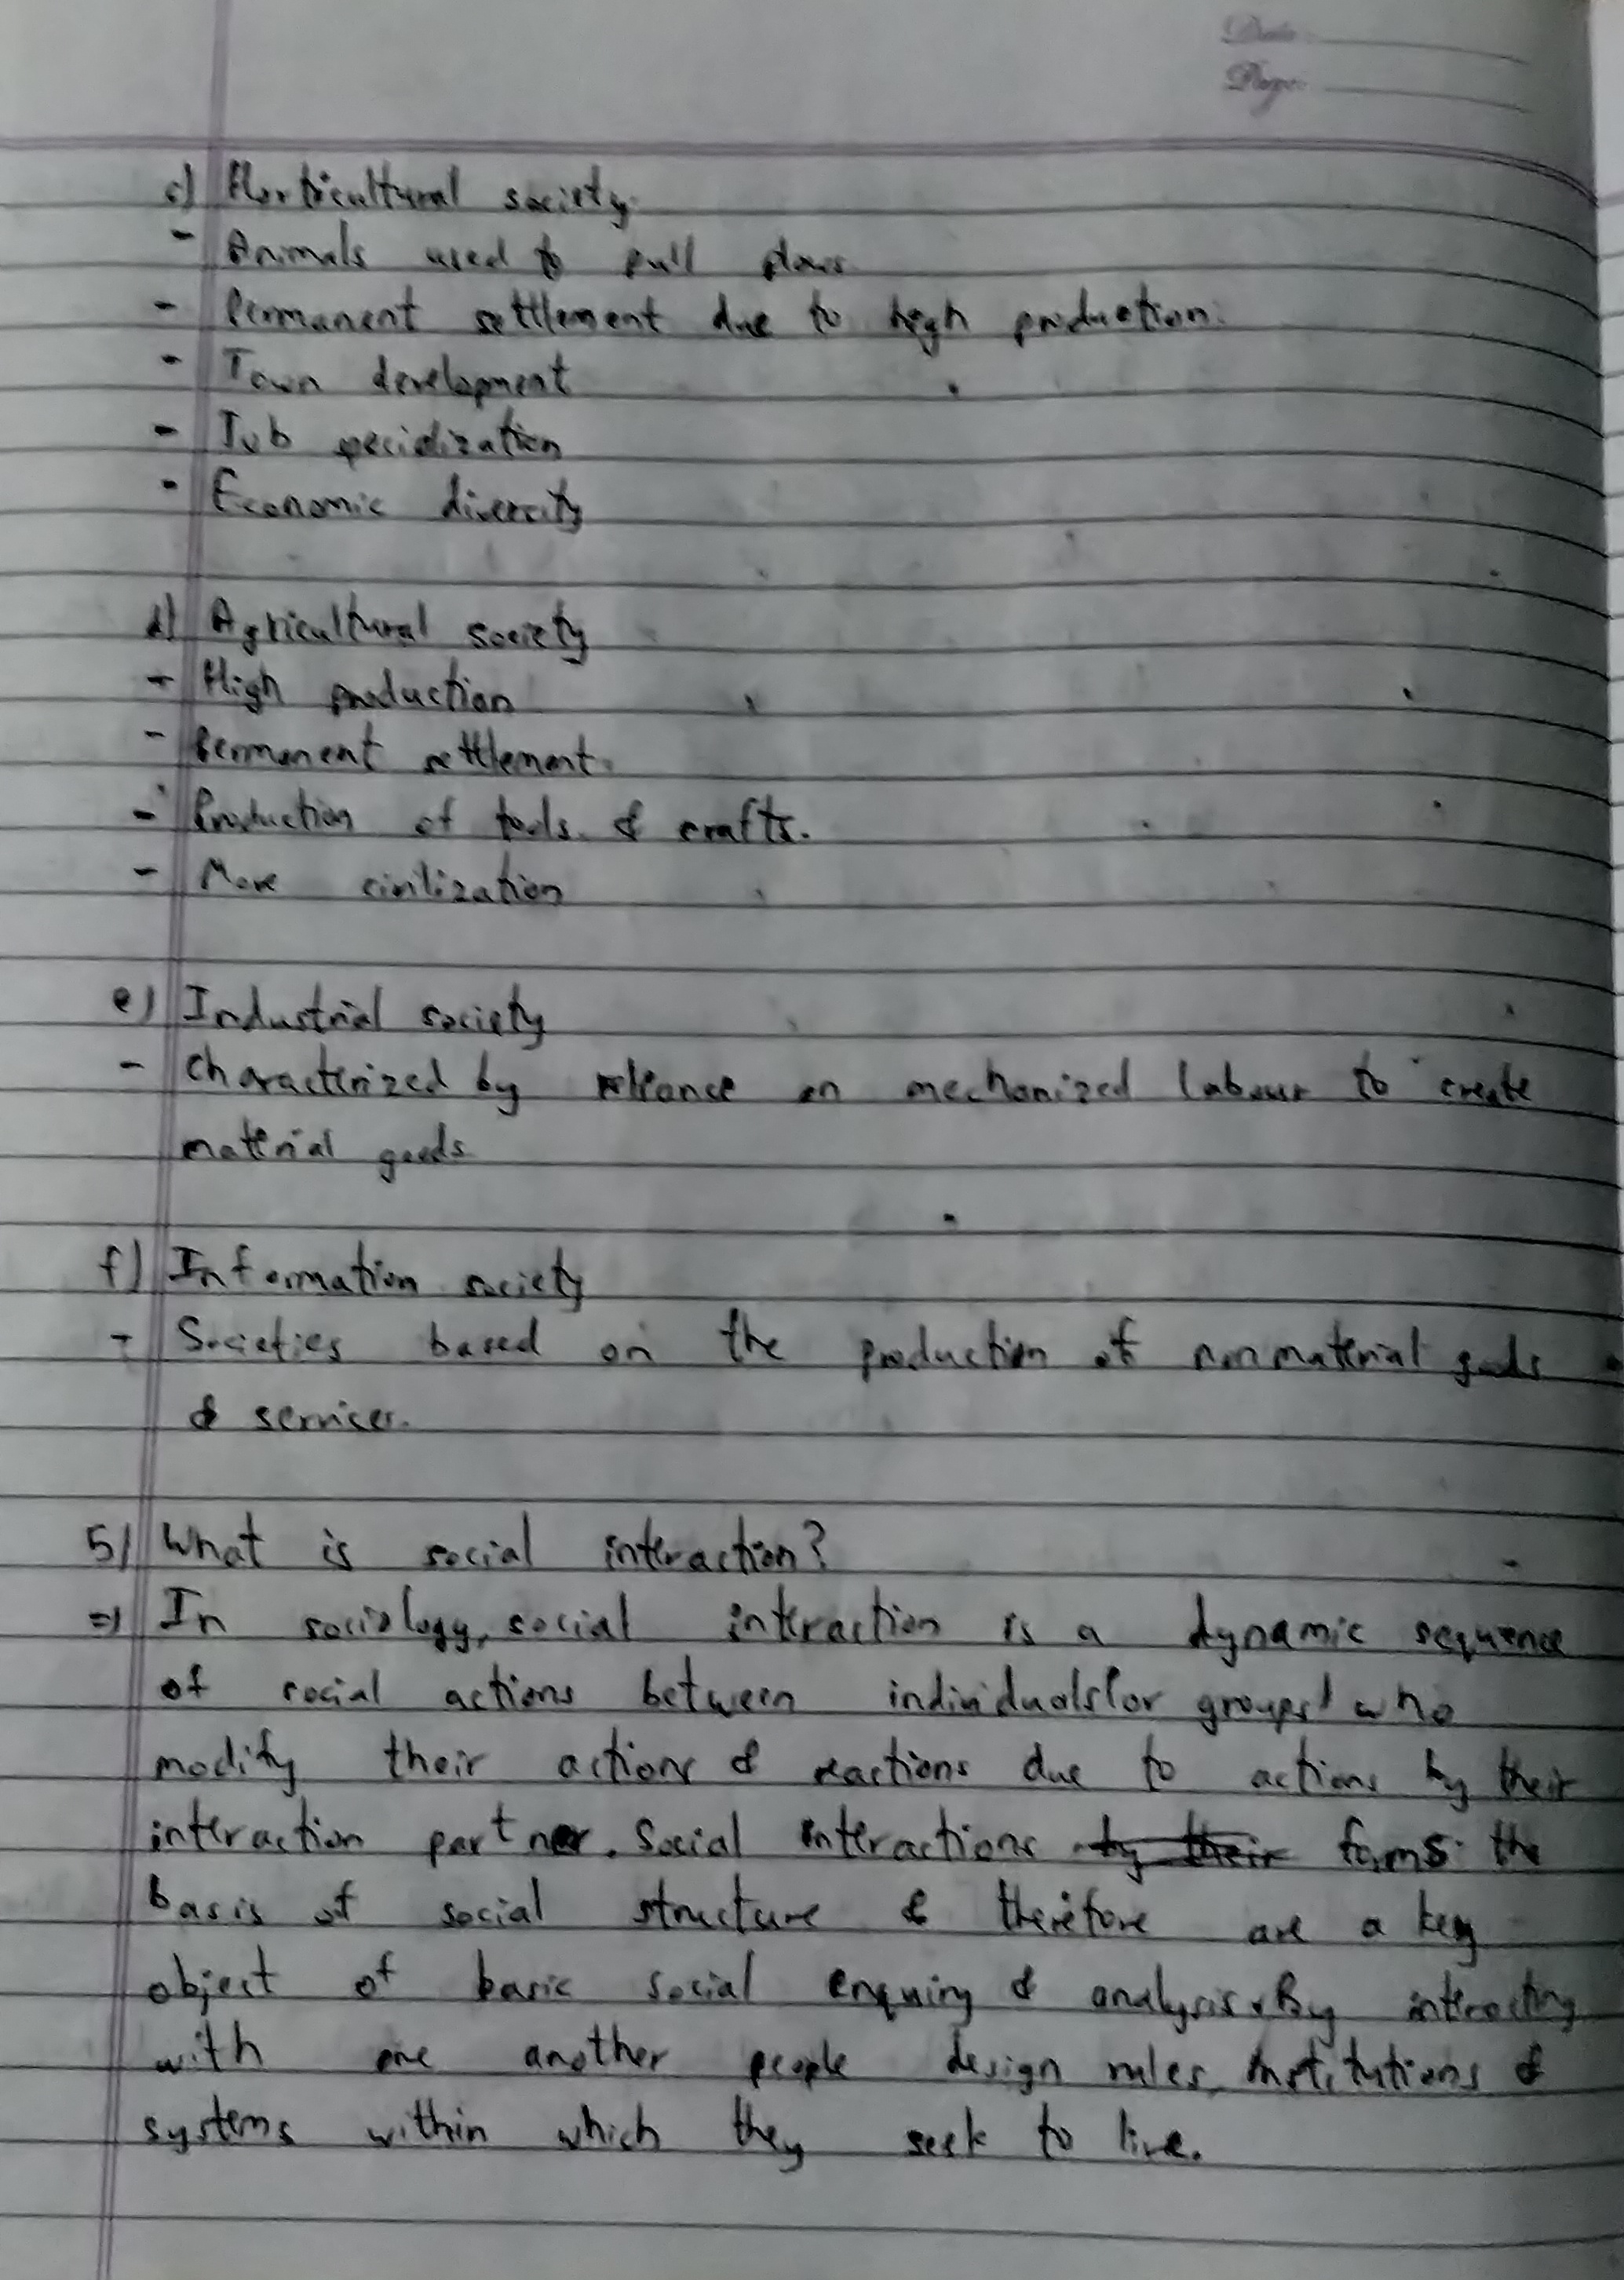 Date:
Page:
c) Horticultural society
- Animals used to pull plows
- Permanent settlement due to high production.
- Town development
- Job specialization
- Economic diversity
d) Agricultural society
- High production
- Permanent settlement.
- Production of tools & crafts.
- More civilization
e) Industrial society
- Characterized by reliance on mechanized labour to create
material goods
f) Information society
- Societies based on the production of nonmaterial goods
& services.
5) What is social interaction?
=) In sociology, social interaction is a dynamic sequence
of social actions between individuals (or groups) who
modify their actions & reactions due to actions by their
interaction partner. Social interactions by their forms the
basis of social structure & therefore are a key
object of basic social enquiry & analysis. By interacting
with one another people design rules, institutions &
systems within which they seek to live.